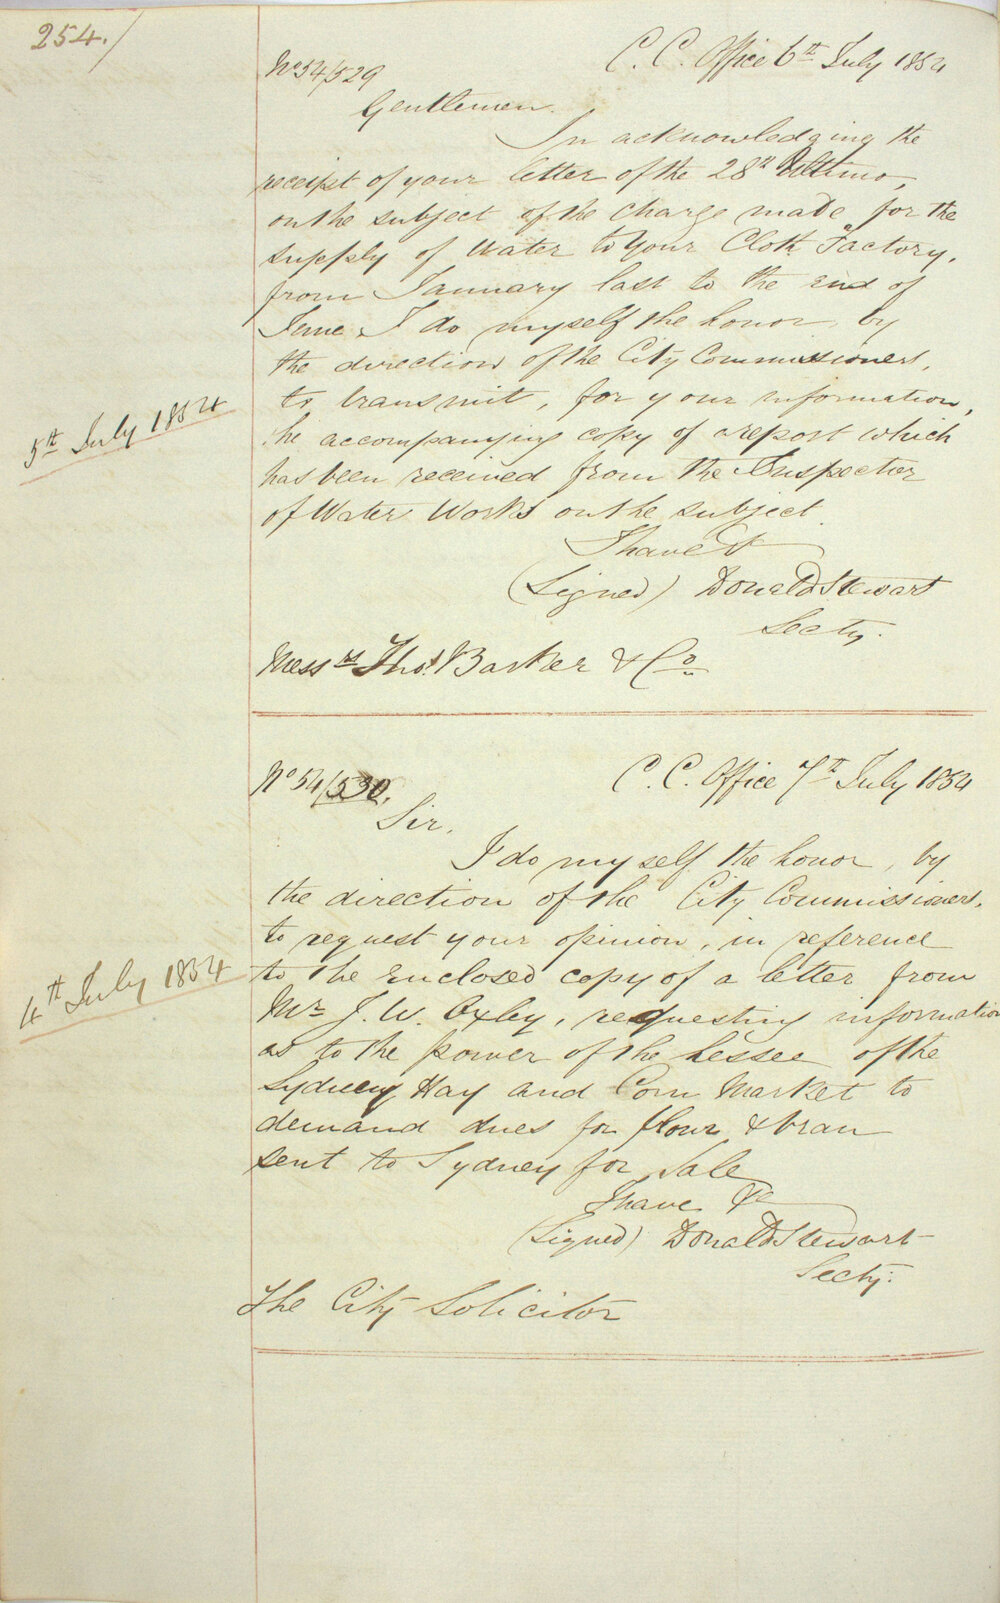 254.
No 54/529
C. C. Office 6th July 1854
Gentlemen.
In acknowledging the
receipt of your letter of the 28th Ultimo,
on the subject of the charge made for the
supply of Water to your Cloth Factory,
from January last to the end of
June, I do myself the honor, by
the direction of the City Commissioners,
to transmit, for your information,
the accompanying copy of a report which
5th July 1854
has been received from the Inspector
of Water Works on the subject.
I have &c
(Signed) Donald Stewart
Secty.
Messrs Thos. Barker & Co.
No 54/530.
C. C. Office 7th July 1854
Sir,
I do myself the honor, by
the direction of the City Commissioners,
to request your opinion, in reference
4th July 1854
to the enclosed copy of a letter from
Mr J. W. Oxley, requesting information
as to the power of the Lessee of the
Sydney Hay and Corn Market to
demand dues for flour & bran
sent to Sydney for Sale
I have &c
(Signed) Donald Stewart
Secty.
The City Solicitor